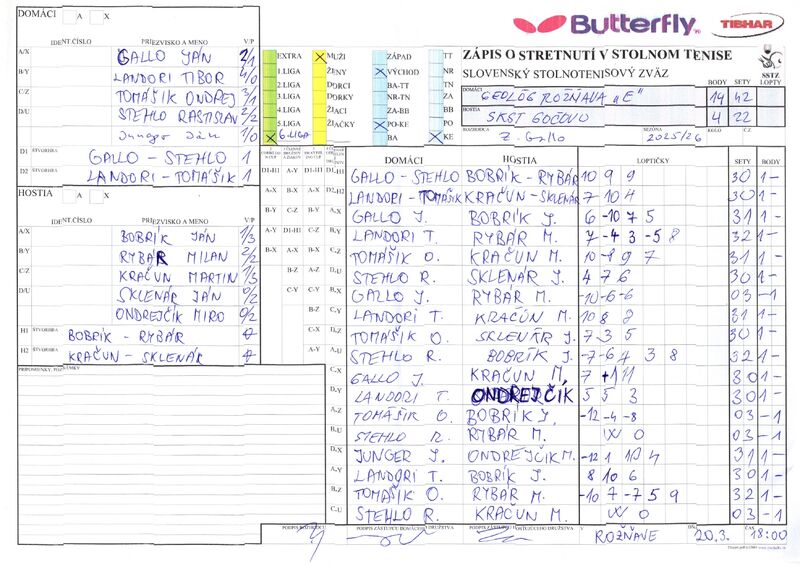 DOMÁCI A X
IDENT.ČÍSLO PRIEZVISKO A MENO V/P
A/X GALLO JÁN 2/1
B/Y LANDORI TIBOR 4/0
C/Z TOMÁŠIK ONDREJ 3/1
D/U STEHLO RASTISLAV 2/2
Junger Ján 1/0
D1 ŠTVORHRA GALLO - STEHLO 1
D2 ŠTVORHRA LANDORI - TOMÁŠIK 1
HOSTIA A X
IDENT.ČÍSLO PRIEZVISKO A MENO V/P
A/X BOBRÍK JÁN 1/3
B/Y RYBÁR MILAN 2/2
C/Z KRAČUN MARTIN 1/3
D/U SKLENÁR JÁN 0/2
ONDREJČIK MIRO 0/2
H1 ŠTVORHRA BOBRÍK - RYBÁR
H2 ŠTVORHRA KRAČUN - SKLENÁR
PRIPOMIENKY, POZNÁMKY
Butterfly TIBHAR
EXTRA X MUŽI ZÁPAD TT
1.LIGA ŽENY X VÝCHOD NR
2.LIGA DORCI BA-TT ZA
3.LIGA DORKY NR-TN ZA
4.LIGA ŽIACI ZA-BB PO
5.LIGA ŽIAČKY X PO-KE BB
X 6.LIGA BA X KE
ZÁPIS O STRETNUTÍ V STOLNOM TENISE
SLOVENSKÝ STOLNOTENISOVÝ ZVÄZ
BODY SETY SSTZ LOPTY
DOMÁCI GEOLÓG ROŽŇAVA "E" 14 42
HOSTIA SKST GOČOVO 4 22
ROZHODCA Z. Gallo SEZÓNA 2025/26 KOLO Č.Z
DOMÁCI HOSTIA LOPTIČKY SETY BODY
GALLO - STEHLO BOBRÍK - RYBÁR 10 9 9 3 0 1 -
LANDORI - TOMÁŠIK KRAČUN - SKLENÁR 7 10 4 3 0 1 -
GALLO J. BOBRÍK J. 6 -10 7 5 3 1 1 -
LANDORI T. RYBÁR M. 7 -4 3 -5 8 3 2 1 -
TOMÁŠIK O. KRAČUN M. 10 -8 9 7 3 1 1 -
STEHLO R. SKLENÁR J. 4 7 6 3 0 1 -
GALLO J. RYBÁR M. -10 -6 -6 0 3 - 1
LANDORI T. KRAČUN M. 10 8 2 3 0 1 -
TOMÁŠIK O. SKLENÁR J. 7 3 5 3 0 1 -
STEHLO R. BOBRÍK J. -7 -6 4 3 8 3 2 1 -
GALLO J. KRAČUN M. 7 11 3 0 1 -
LANDORI T. ONDREJČIK 5 5 3 3 0 1 -
TOMÁŠIK O. BOBRÍK J. -12 -4 -8 0 3 - 1
STEHLO R. RYBÁR M. W O 0 3 - 1
JUNGER J. ONDREJČIK M. -12 1 10 4 3 1 1 -
LANDORI T. BOBRÍK J. 8 10 6 3 0 1 -
TOMAŠIK O. RYBÁR M. -10 7 -7 5 9 3 2 1 -
STEHLO R. KRAČUN M. W O 0 3 - 1
PODPIS ROZHODCU PODPIS ZÁSTUPCU DOMÁCEHO DRUŽSTVA PODPIS ZÁSTUPCU HOSŤUJÚCEHO DRUŽSTVA V ROŽŇAVE DŇA 20.3. 18:00